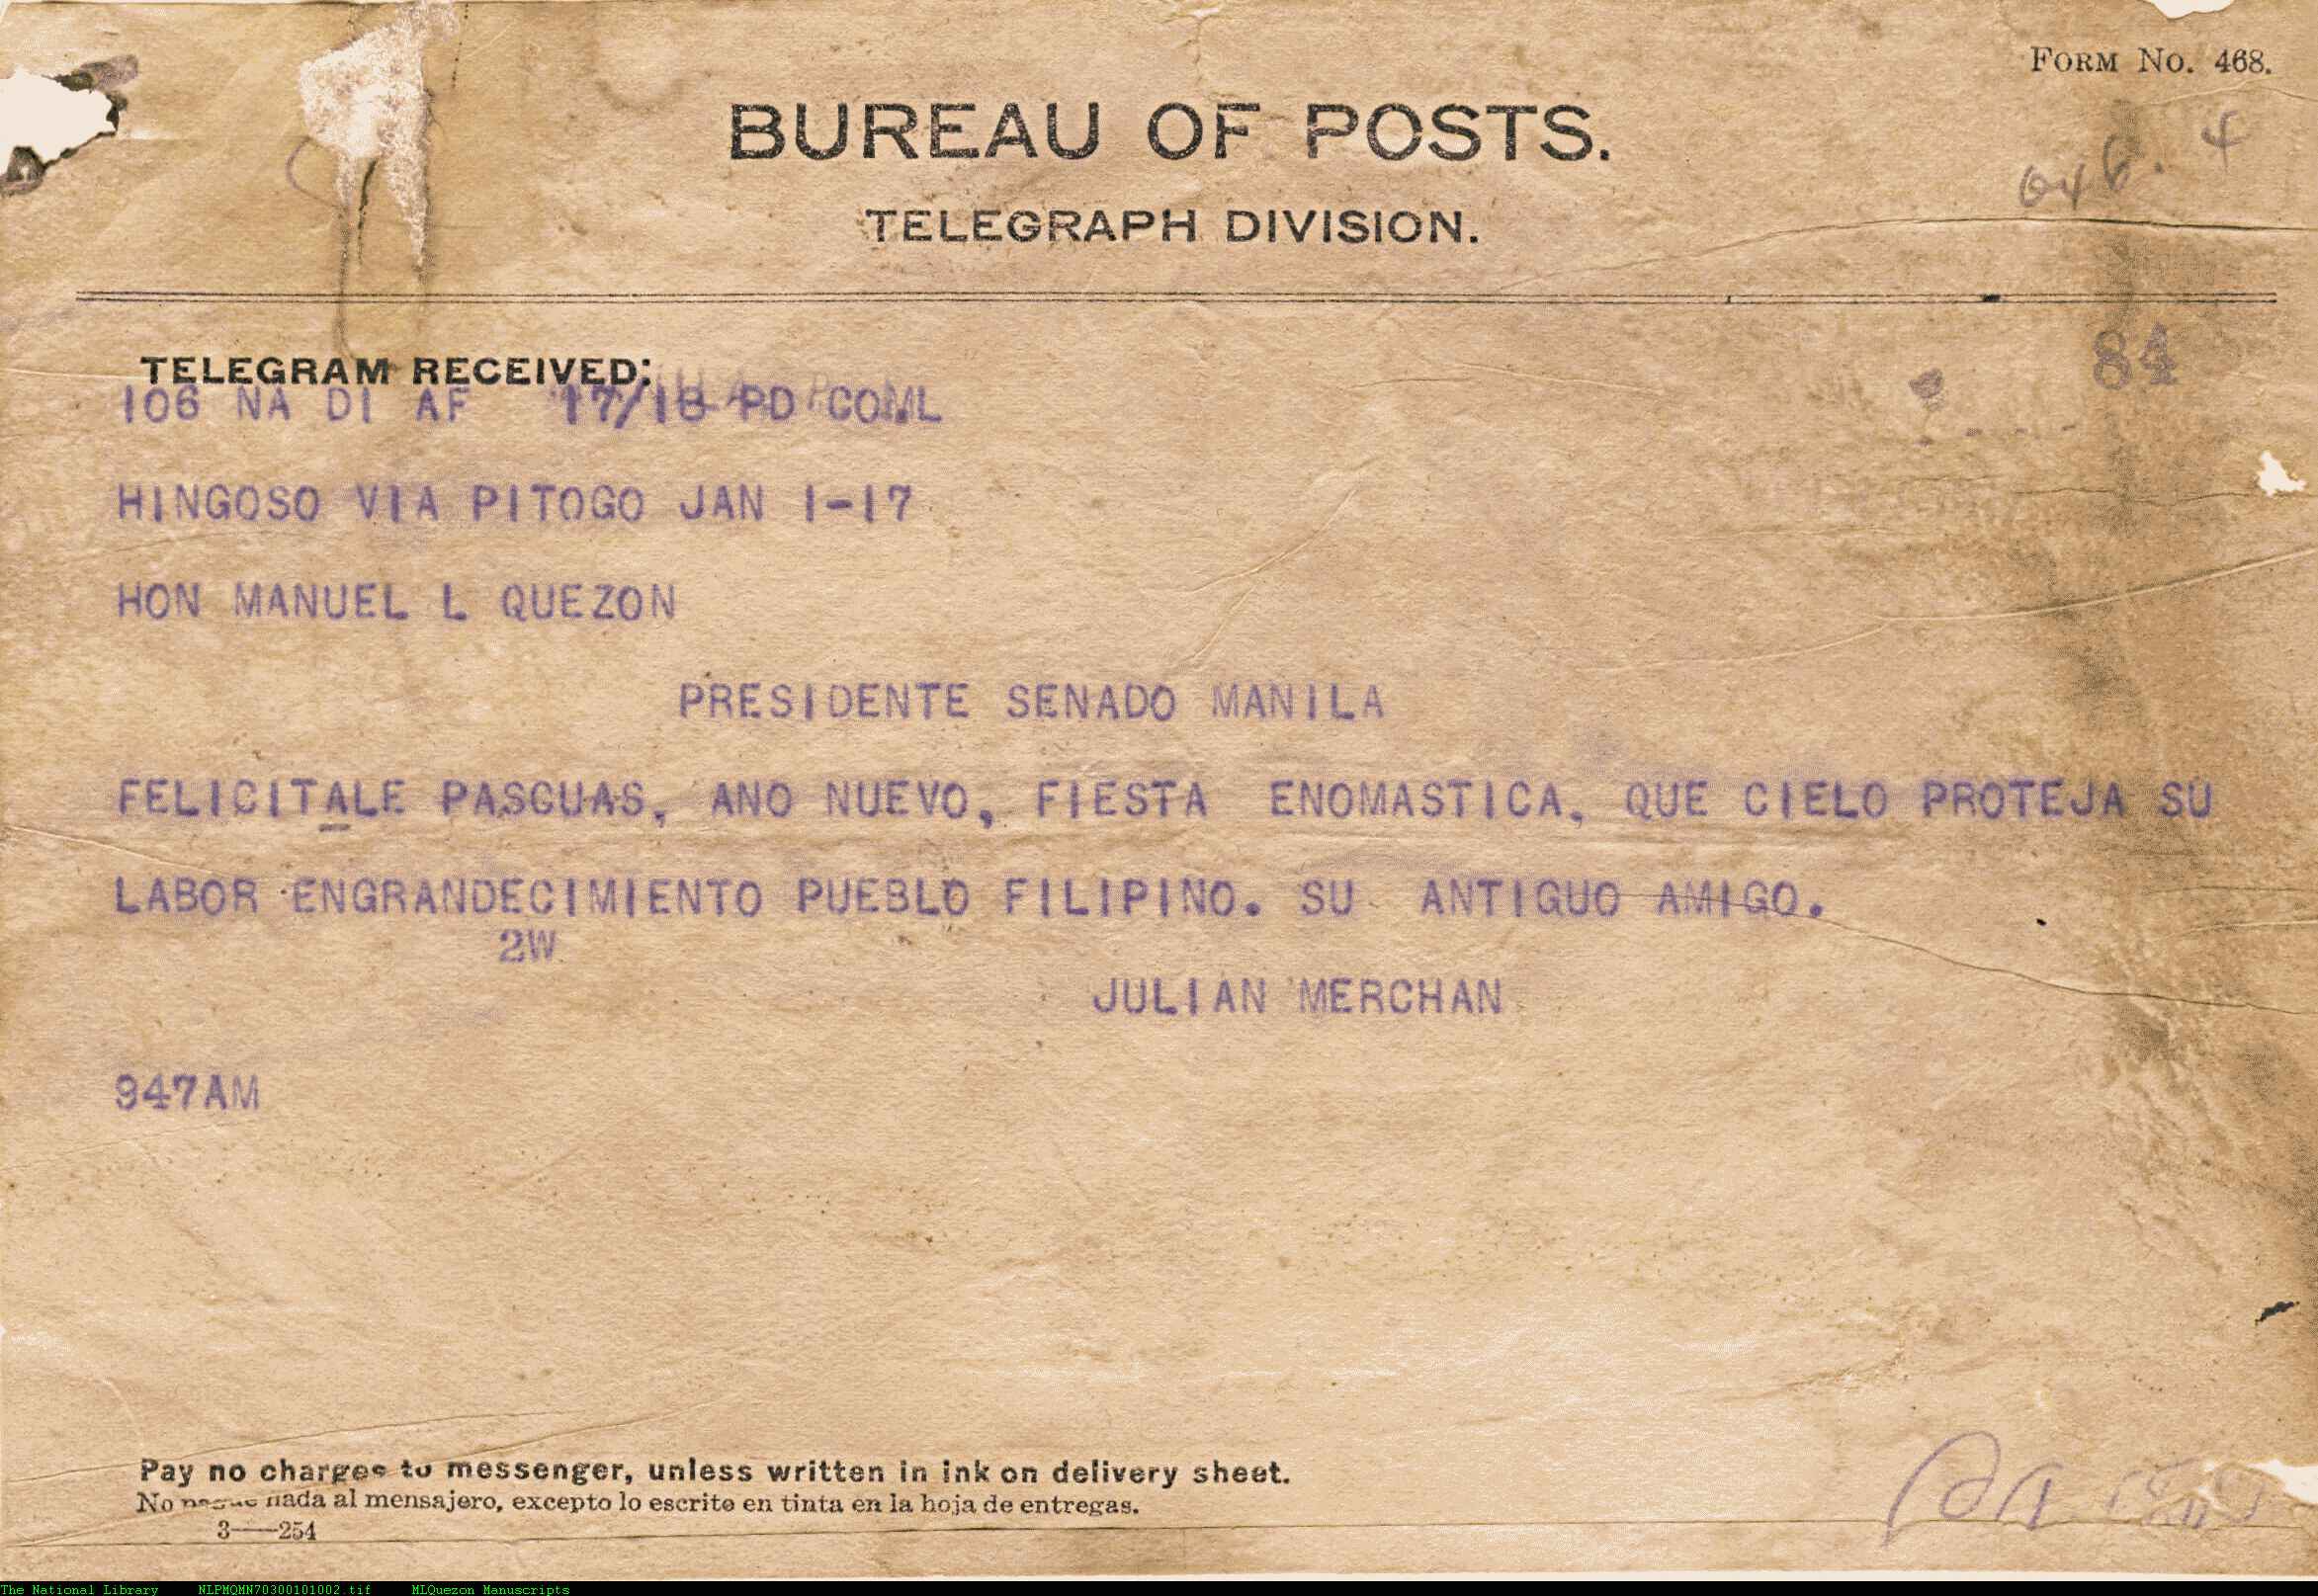 FORM NO. 468.
BUREAU OF POSTS.
TELEGRAPH DIVISION.
046.4
84
TELEGRAM RECEIVED:
106 NA DI AF 17/18 PD COML
HINGOSO VIA PITOGO JAN 1-17
HON MANUEL L QUEZON
PRESIDENTE SENADO MANILA
FELICITALE PASCUAS, ANO NUEVO, FIESTA ENOMASTICA, QUE CIELO PROTEJA SU
LABOR ENGRANDECIMIENTO PUEBLO FILIPINO. SU ANTIGUO AMIGO.
2W
JULIAN MERCHAN
947AM
Pay no charges to messenger, unless written in ink on delivery sheet.
No pague nada al mensajero, excepto lo escrito en tinta en la hoja de entregas.
3——254
The National Library NLPMQMN70300101002.tif MLQuezon Manuscripts